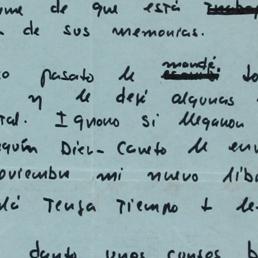 me de que está
n de sus memorias.
o pasato le mandé to
y le dejé algunas
tal. Ignoro si llegaron
quín Diez-Caneto le en
oviembre mi nuevo lib
lá tenga tiempo t le
danto unos cuntos b